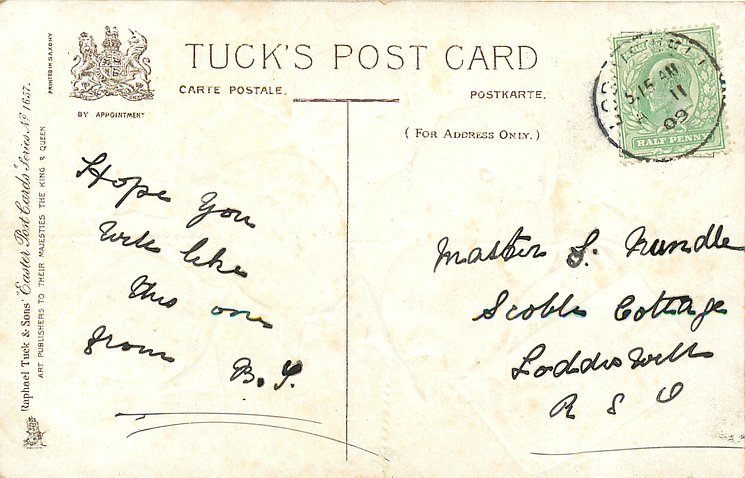 TUCK'S POST CARD
CARTE POSTALE.
POSTKARTE.
BY APPOINTMENT
(FOR ADDRESS ONLY.)
PRINTED IN SAXONY
Raphael Tuck & Sons' "Easter Post Cards" Series No 1657.
ART PUBLISHERS TO THEIR MAJESTIES THE KING & QUEEN
5.15 AM
11
09
HALF PENNY
Hope you
will like
this one
from B.S.
Master S. Rundle
Scobls Cottage
Loddiswell
R S O